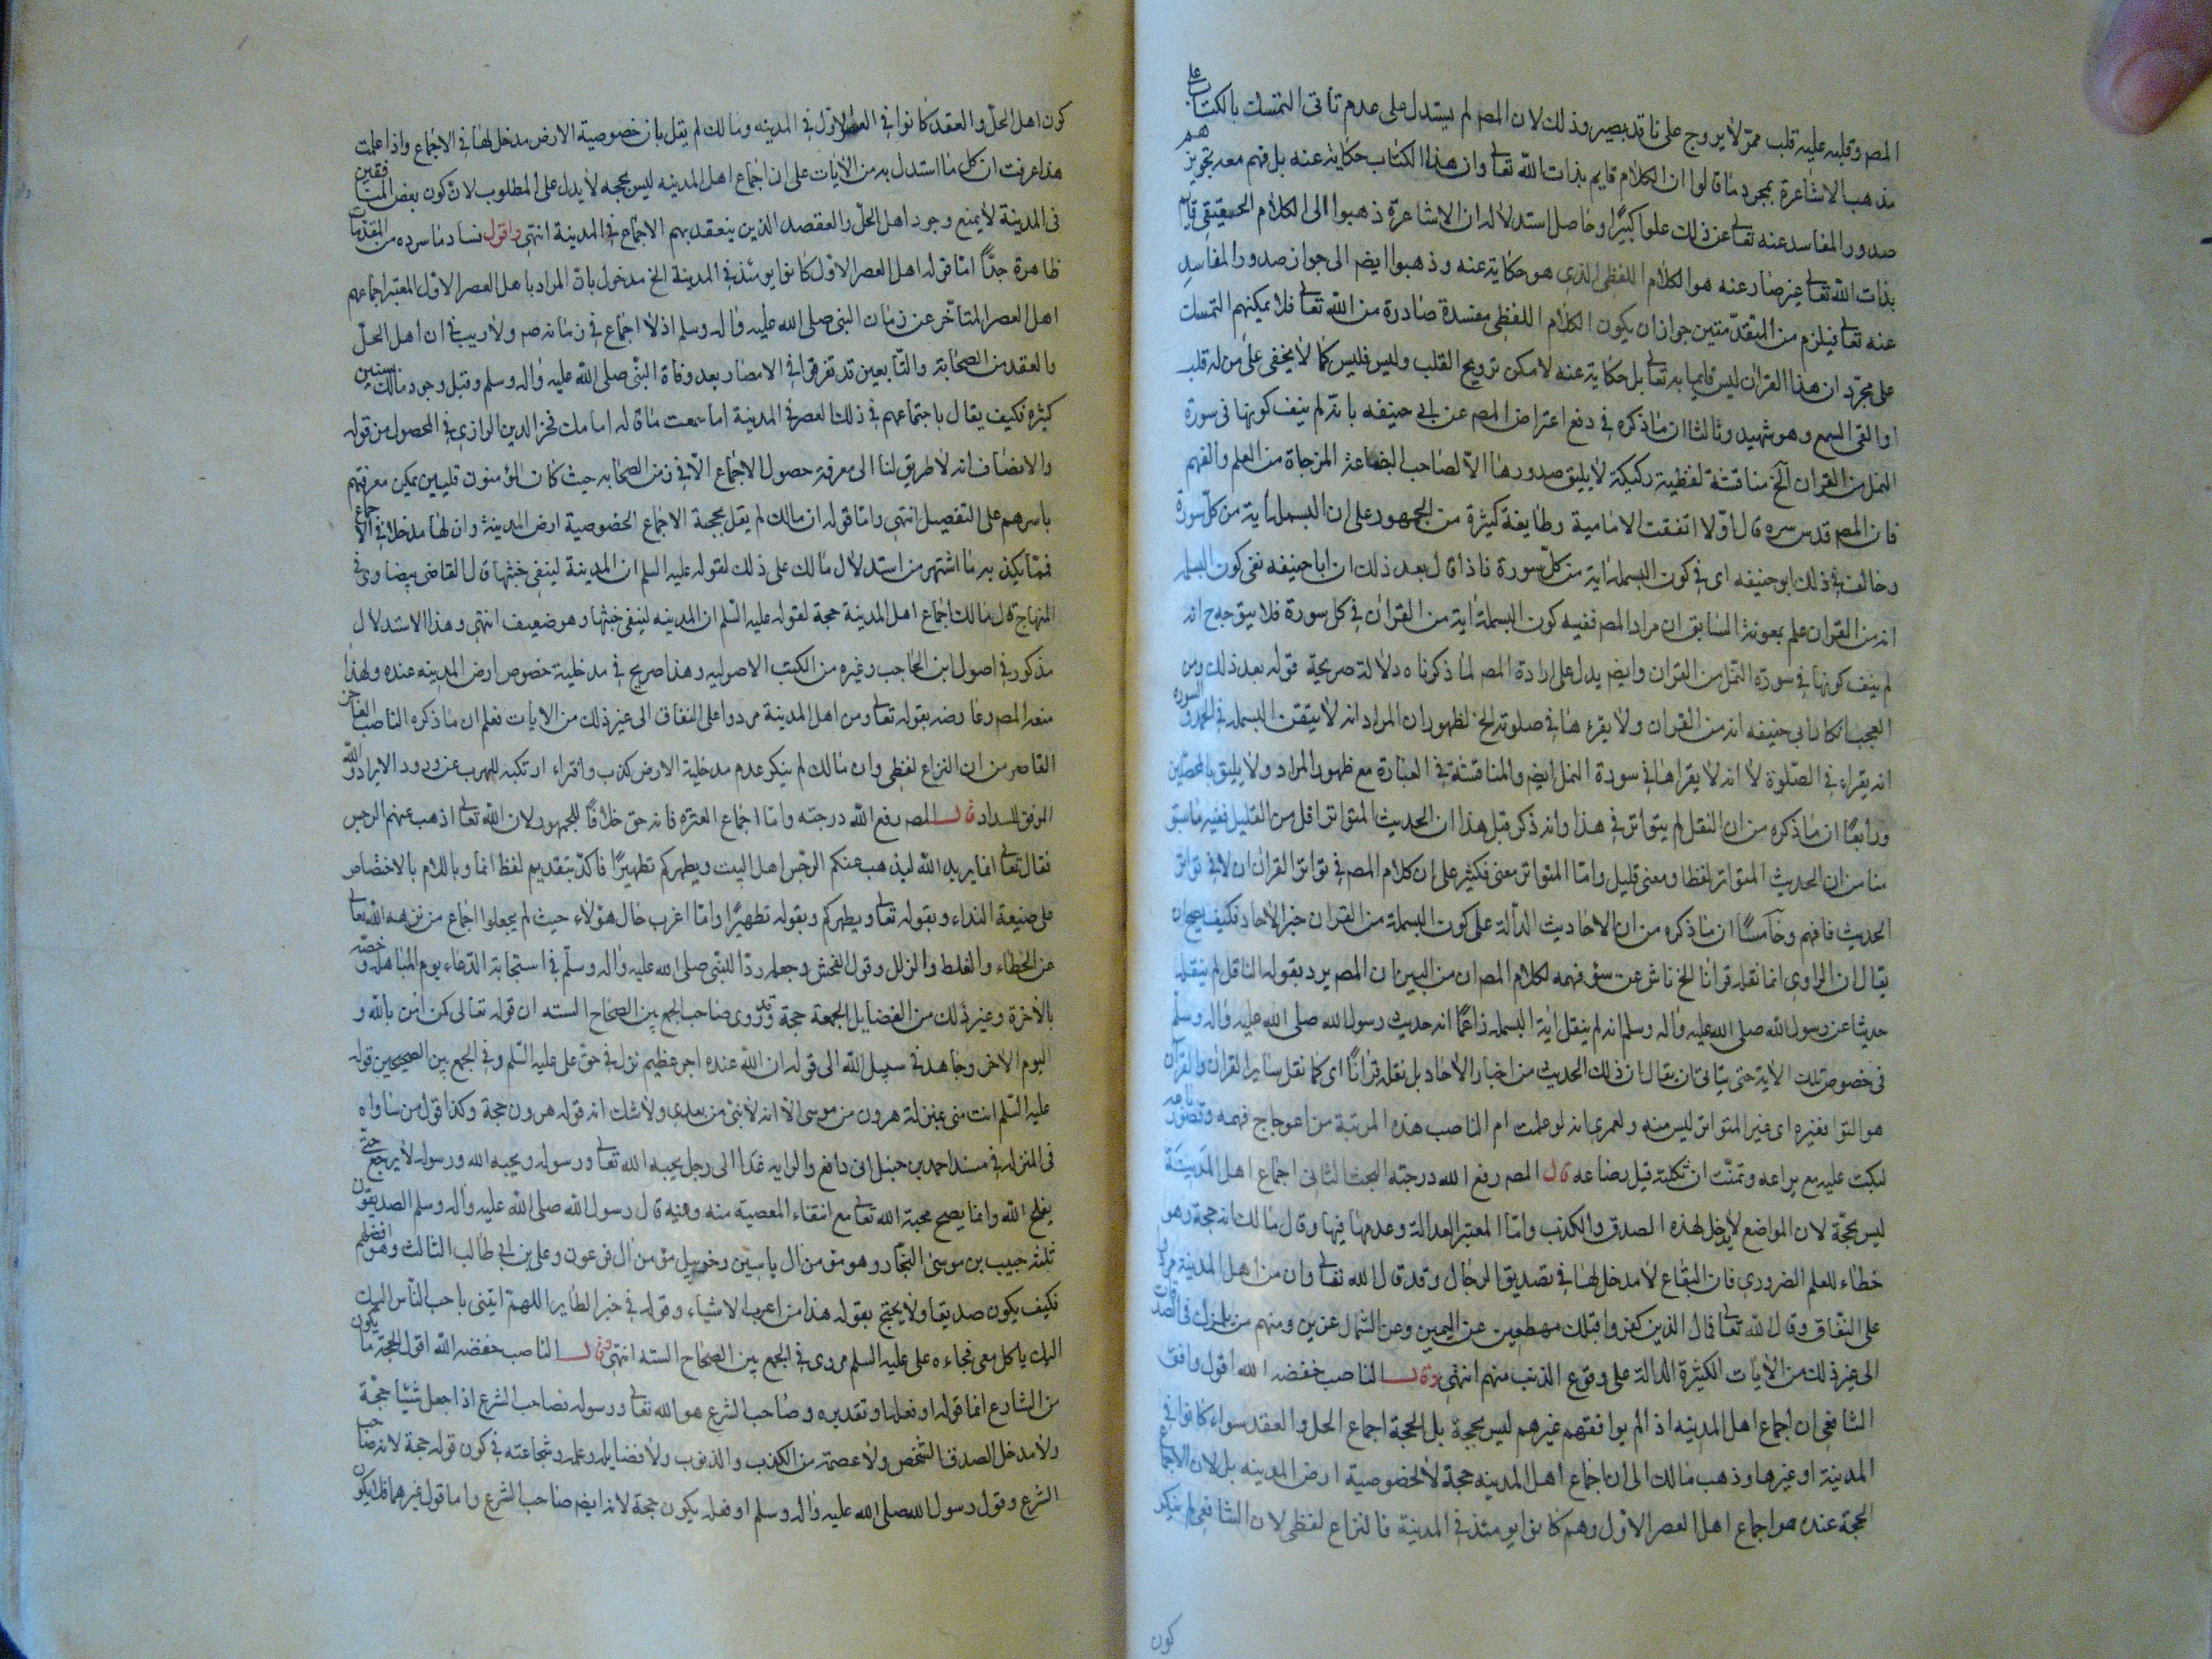 المص وقلبه عليه قلب ممرّ لا يروج على ناقد بصير وذلك لان المص لم يستدل على عدم تأتى التمسك بالكتاب على
مذهب الاشاعرة بمجرد ما قالوا ان الكلام قايم بذات الله تعالى وان هذا الكتاب حكاية عنه بل ضم معه تجويزهم
صدور المفاسد عنه تعالى عن ذلك علوا كبيرًا وحاصل استدلاله ان الاشاعرة ذهبوا الى الكلام الحقيقي قايم
بذات الله تعالى غير صادر عنه هو الكلام اللفظى الذى هو حكاية عنه وذهبوا ايضم الى جواز صدور المفاسد
عنه تعالى فيلزم من المتقدّمتين جواز ان يكون الكلام اللفظى مفسدة صادرة من الله تعالى فلا يمكنهم التمسك
على مجرّد ان هذا القران ليس قايما به تعالى بل حكاية عنه لامكن ترويج القلب وليس فليس كما لا يخفى على من له قلب
او القى السمع وهو شهيد وثالثا ان ما ذكره في دفع اعتراض المص عن ابى حنيفه بانه لم ينف كونها في سورة
النمل من القران آلخ مناقشة لفظية ركيكة لا يليق صدورها الّا لصاحب البضاعة المزجاة من العلم والفهم
فان المص قدس سره قال اوّلا اتفقت الامامية وطايفة كثيرة من الجمهور على ان البسملة اية من كلّ سورة
وخالف في ذلك ابو حنيفه اى في كون البسملة اية من كلّ سورة فاذا قال بعد ذلك ان ابا حنيفه نفى كون البسملة
انه من القران علم بمعونة السّابق ان مراد المص نفيه كون البسملة اية من القران في كل سورة فلا يتوجه ح انه
لم ينف كونها في سورة النّمل من القران وايضم يدل على ارادة المص لما ذكرناه دلالة صريحة قوله بعد ذلك ومن
العجب انكار ابى حنيفه انه من القران ولا يقرءها في صلوته الخ لظهور ان المراد انه لا يتيقن البسملة في الحمد والسوره
انه يقراء في الصّلوة لا انه لا يقراها في سورة النمل ايضم والمناقشة في العبارة مع ظهور المراد ولا يليق بالمحصّلين
ورابعًا ان ما ذكره من ان النقل لم يتواتر في هذا وانه ذكر قبل هذا ان الحديث المتواتر اقل من القليل ففيه ما سبق
منا من ان الحديث المتواتر لفظا ومعنى قليل وامّا المتواتر معنى فكثير على ان كلام المص في تواتر القران ان لا في تواتر
الحديث فافهم وخامسًا ان ما ذكره من ان الاحاديث الدّالة على كون البسملة من القران خبر الاحاد فكيف يصح ان
يقال ان الراوى انما نقله قرانا الخ ناش عن سؤ فهمه لكلام المص ان من البين ان المص يرد بقوله الناقل لم ينقله
حديثا عن رسول الله صلى الله عليه واله وسلم انه لم ينقل اية البسملة زاعمًا انه حديث رسول الله صلى الله عليه واله وسلّم
في خصوص تلك الاية حتى يتاتى ان يقال ان ذلك الحديث من اخبار الاحاد بل نقله قرانًا اى كما نقل ساير القران والقرآن
هو التواتر فغيره اى غير المتواتر ليس منه ولعمرى انه لو علمت ام الناصب هذه المرتبة من اعوجاج فهمه وقصور باعه
لبكت عليه مع يراعه وتمنّت ان ثكلته قبل رضاعه قال المص رفع الله درجته البحث الثانى اجماع اهل المدينة
ليس بحجّة لان المواضع لا يدخل لهذه الصدق والكذب وامّا المعتبر العدالة وعدمها فيها وقال مالك انه حجة وهو
خطاء للعلم الضرورى فان البقاع لا مدخل لها في تصديق الرجال وقد قال الله تعالى وان من اهل المدينة مردوا
على النفاق وقال لله تعالى فمال الذين كفروا قبلك مهطعين عن اليمين وعن الشمال عزين ومنهم من يلمزك في الصدقات
الى غير ذلك من الايات الكثيرة الدالة على وقوع الذنب منهم انتهى وقال الناصب خفضه الله اقول وافق
الشافعى ان اجماع اهل المدينه اذ الم يوافقهم غيرهم ليس بحجة بل الحجة اجماع الحل والعقد سواء كانوا في
المدينة او غيرها وذهب مالك الى ان اجماع اهل المدينه حجة لا لخصوصية ارض المدينه بل لان الاجماع
الحجة عنده هو اجماع اهل العصر الاوّل وهم كانوا يومئذ في المدينة فالنزاع لفظى لان الشافعى لم ينكر
كون
كون اهل الحلّ والعقد كانوا في العصر الاول في المدينه ومالك لم يقل بان خصوصية الارض مدخل لها في الاجماع واذا علمت
هذا عرفت ان كل ما استدل به من الايات على ان اجماع اهل المدينه ليس بحجه لا يدل على المطلوب لانّ كون بعض المنافقين
فى المدينة لا يمنع وجود اهل الحلّ والعقصد الذين ينعقد بهم الاجماع في المدينة انتهى واقول فساد ما سرده من المقدّمات
ظاهرة جدًّا امّا قوله اهل العصر الاوّل كانوا يومئذ في المدينة الخ مدخول بانّ المراد باهل العصر الاوّل المعتبر اجماعهم
اهل العصر المتأخّر عن زمان النبى صلى الله عليه واله وسلم اذ لا اجماع في زمانه صم ولا ريب في ان اهل الحلّ
والعقد من الصحابة والتّابعين قد تفرقوا في الامصار بعد وفاة النبى صلى الله عليه واله وسلم وقبل وجود مالك بسنين
كثيره فكيف يقال باجتماعهم في ذلك العصر في المدينة اما سمعت ما قاله امامك فخر الدين الرازى في المحصول من قوله
والانصاف انه لا طريق لنا الى معرفة حصول الاجماع الّا في زمن الصحابه حيث كان المؤمنون قليلين يمكن معرفتهم
باسرهم على التفصيل انتهى وامّا قوله ان مالك لم يقل بحجية الاجماع الخصوصية ارض المدينة وان لها مدخلا في الاجماع
فممّا يكذبه ما اشتهر من استدلال مالك على ذلك لقوله عليه السلم ان المدينة لينفى خبثها قال القاضى بيضاوى في
المنهاج قال مالك اجماع اهل المدينة حجة لقوله عليه السّلم ان المدينه لينفى خبثها وهو ضعيف انتهى وهذا الاستدلال
مذكور في اصول ابن الحاجب وغيره من الكتب الاصوليه وهذا صريح في مدخلية خصوص ارض المدينه عنده ولهذا
منعه المص وعارضه بقوله تعالى ومن اهل المدينة مردوا على النفاق الى غير ذلك من الايات فعلم ان ما ذكره الناصب العاجز
القاصر من ان النزاع لفظى وان مالك لم ينكر عدم مدخلية الارض كذب وافتراء ارتكبه للهرب عن ورود الايراد والله
الموفق للسداد قال المص رفع الله درجته وامّا اجماع العترة فانه حق خلافًا للجمهور لان الله تعالى اذهب عنهم الرجس
فقال تعالى انما يريد الله ليذهب عنكم الرجس اهل البيت ويطهركم تطهيرًا فاكّد بتقديم لفظ انما وباللام بالاختصاص
على صيغة النداء وبقوله تعالى ويطهركم وبقوله تطهيرًا وامّا اغرب حال هؤلاء حيث لم يجعلوا اجماع من نزهه الله تعالى
عن الخطاء والغلط والزلل وقول الفحش وجعله ردّا للنبى صلى الله عليه واله وسلّم في استجابة الدّعاء يوم المباهله وخصّه
بالآخرة وغير ذلك من الفضايل الجمعة حجة وقد روى صاحب الجمع بين الصحاح السته ان قوله تعالى كمن امن بالله و
اليوم الاخر وجاهد في سبيل الله الى قوله ان الله عنده اجر عظيم نزل في حق على عليه السّلم وفي الجمع بين الصحيحين قوله
عليه السّلم انت منى بمنزلة هرون من موسى الّا انه لا نبىّ من بعدى ولا شك انه قوله هرون حجة وكذا قول من ساواه
فى المنزله في مسند احمد بن حنبل انى دافع الرايه غدا الى رجل يحبه الله تعالى ورسوله ويحبه الله ورسوله لا يرجع حتّى
يفتح الله وانما يصح محبة الله تعالى مع انتفاء المعصية منه وفيه قال رسول الله صلى الله عليه واله وسلم الصديقون
ثلثه حبيب بن موسى النجّار وهو مؤمن ال ياسين وخربيل مؤمن ال فرعون وعلى بن ابى طالب الثالث وهو افضلهم
فكيف يكون صديقا ولا يحتج بقوله هذا من اعرب الاشياء وقوله في خبر الطاير اللهمّ ايتنى باحب النّاس اليك
اليك ياكل معى فجاءه على عليه السلم مروى في الجمع بين الصحاح السته انتهى وقال الناصب خفضه الله اقول الحجة ما يكون
من الشارع انما قوله او فعله او تقديره وصاحب الشرع هو الله تعالى ورسوله فصاحب الشرع اذا جعل شيئا حجّة
ولا مدخل لصدق الشخص ولا عصمته من الكذب والذنوب ولا فضايله وعلمه وشجاعته في كون قوله حجة لانه صاحب
الشرع وقول رسول الله صلى الله عليه واله وسلم او فعله يكون حجة لانه ايضم صاحب الشرع واما قول غيرهما فلا يكون